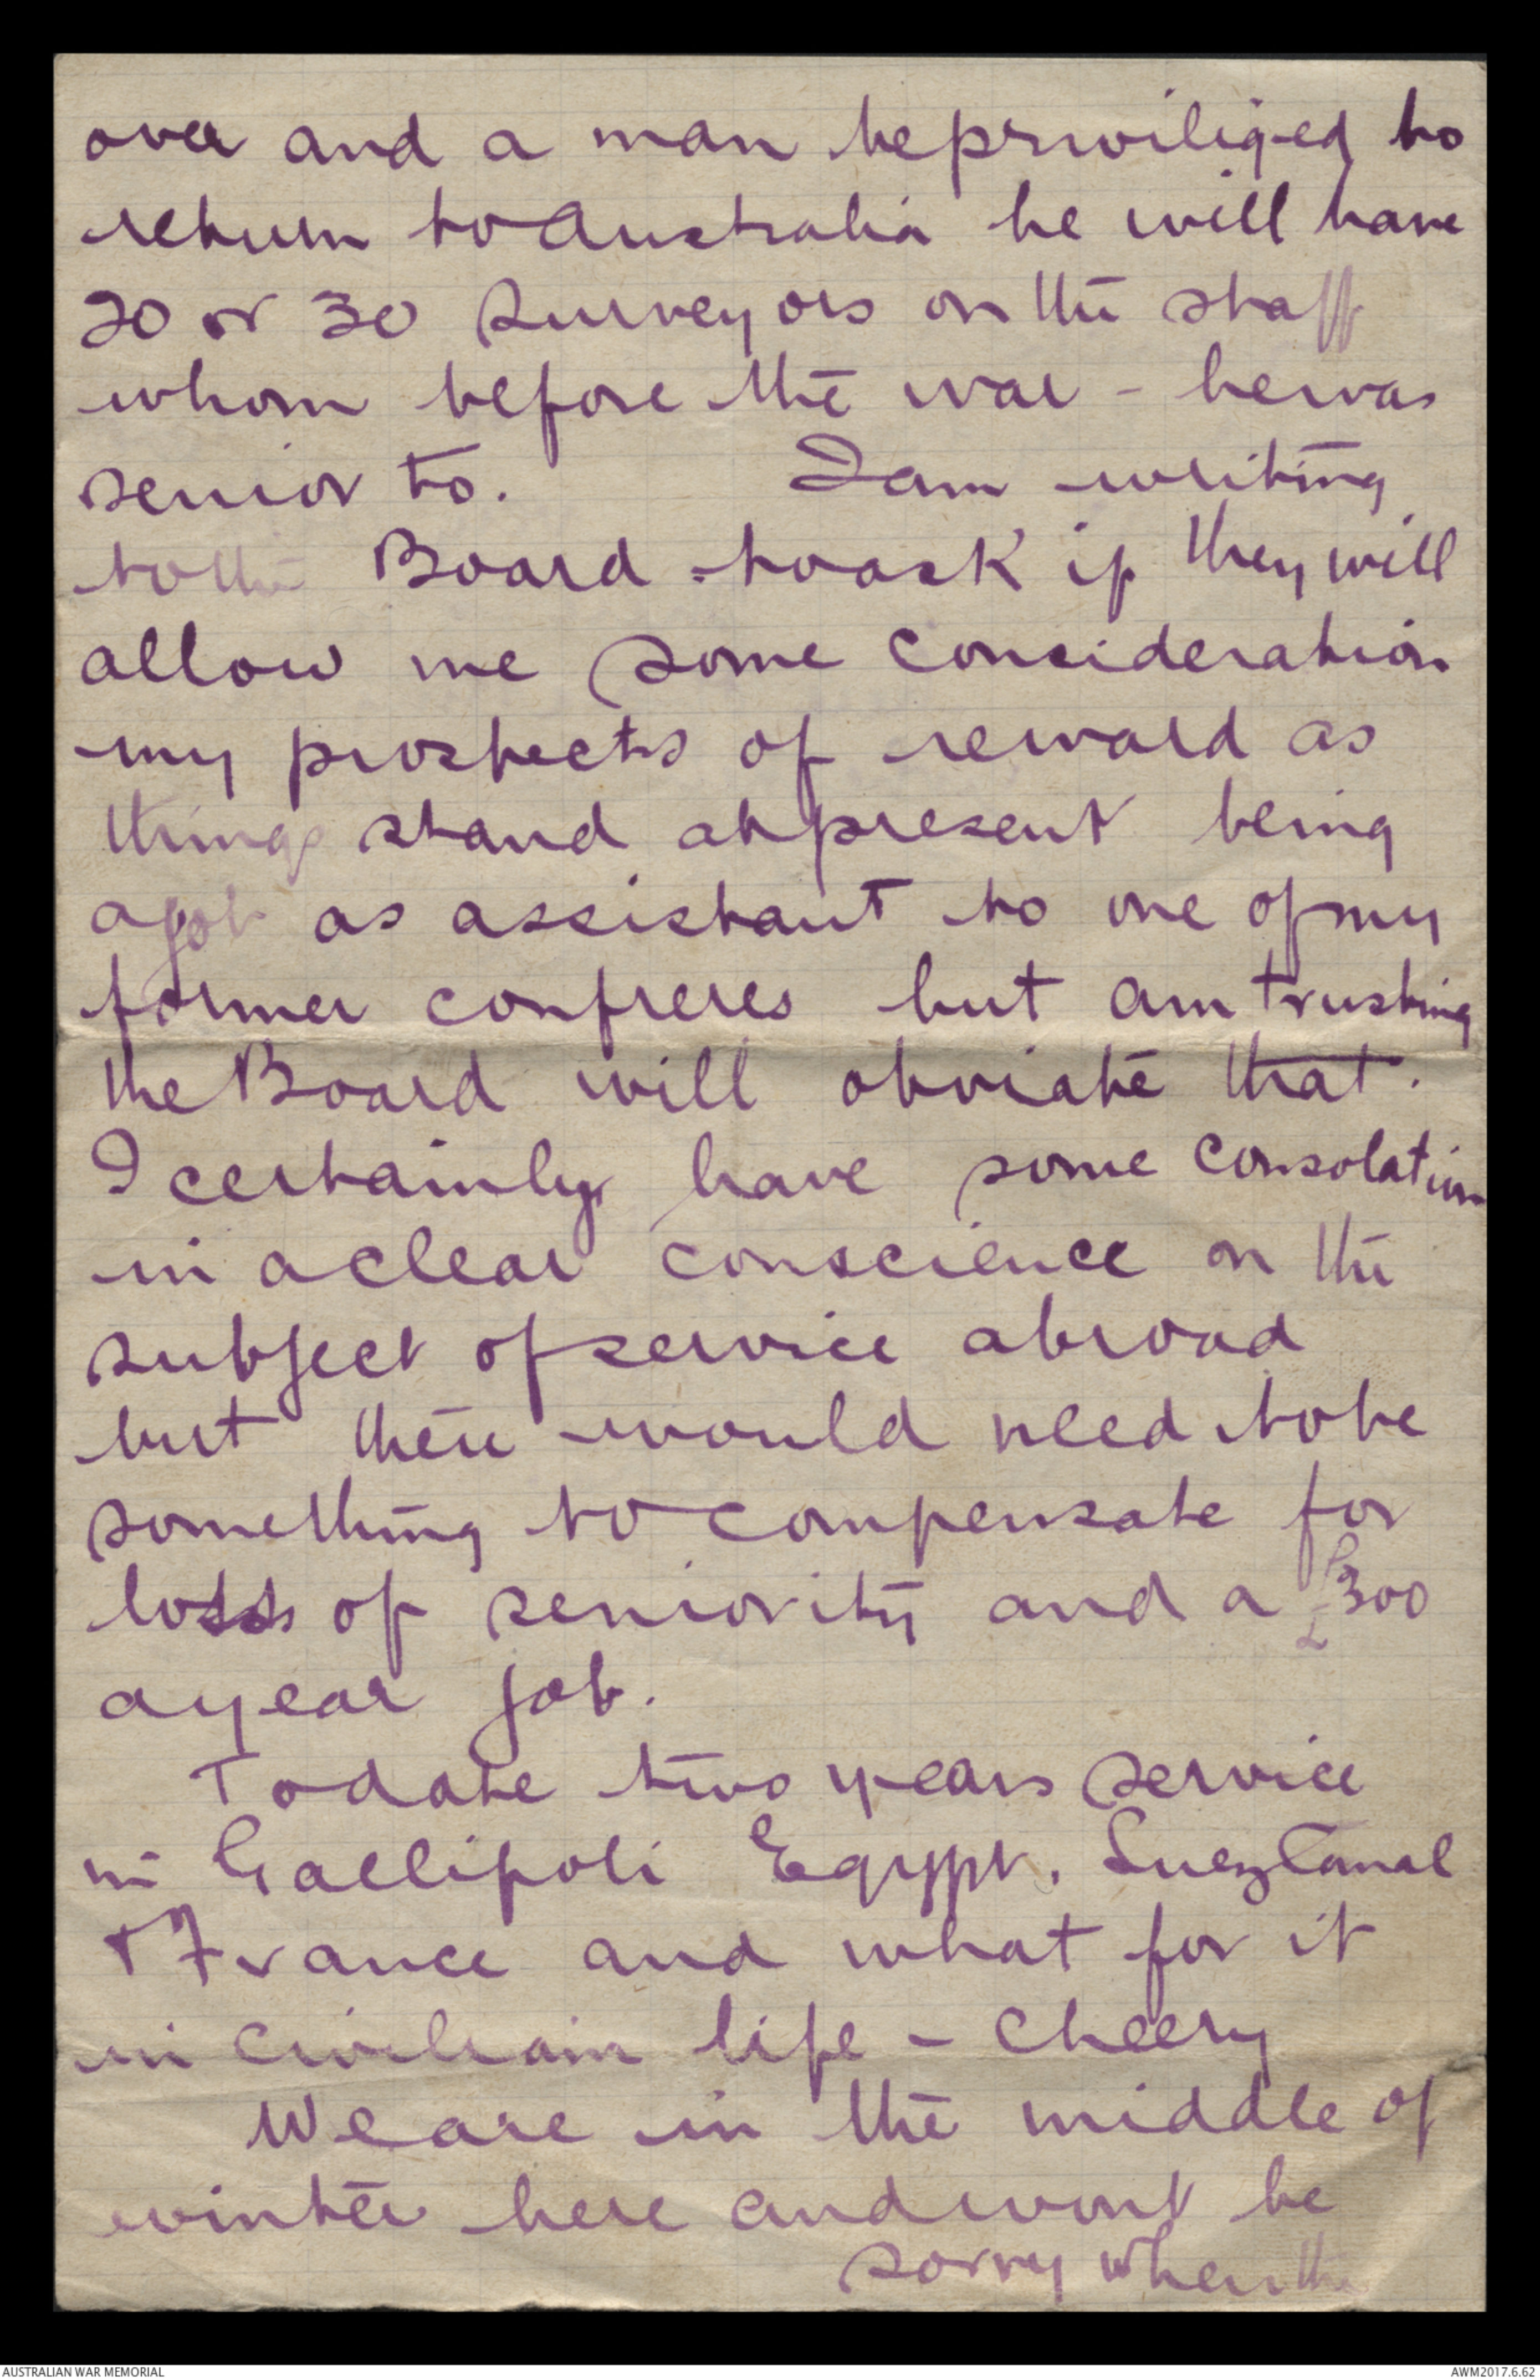 over and a man be priviliged to
return to Australia he will have
20 or 30 Surveyors on the staff
whom before the war - he was
senior to. I am writing
to the Board to ask if they will
allow me some consideration
my prospects of reward as
things stand at present being
a job as assistant to one of my
former confreres but am trusting
the Board will obviate that.
I certainly have some consolation
in a clear conscience on the
subject of service abroad
but there would need to be
something to compensate for
loss of seniority and a £300
a year job.
To date two years service
in Gallipoli Egypt. Suez Canal
+ France and what for it
in civilian life - Cheery
We are in the middle of
winter here and wont be
sorry when the
AUSTRALIAN WAR MEMORIAL
AWM2017.6.62